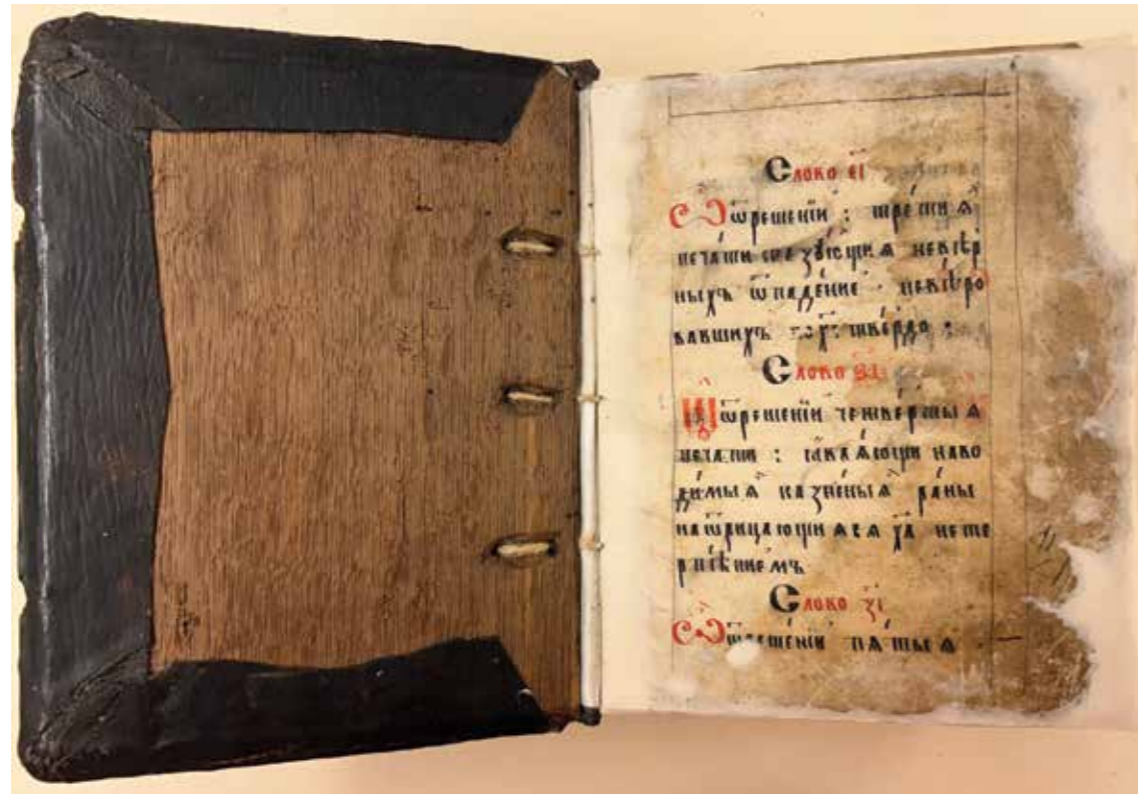 Слово е҃і
Ѡ ѿрешенїи : третиѧ
печати сказꙋющиѧ невѣр
ныхъ ѿпаде́ние · невѣ́ро
вавшихъ тве́рдо :
Слово ѕ҃і
Ѡ ѿрешенїи четвертыѧ
печати : ꙗвлѧ́ющи наво
ди́мыѧ казне́ныѧ ра́ны
на ѿрицающиѧсѧ х҃а нете
рпѣ́ниемъ
Слово з҃і
Ѡ ѿрешенїи пѧ́тыѧ